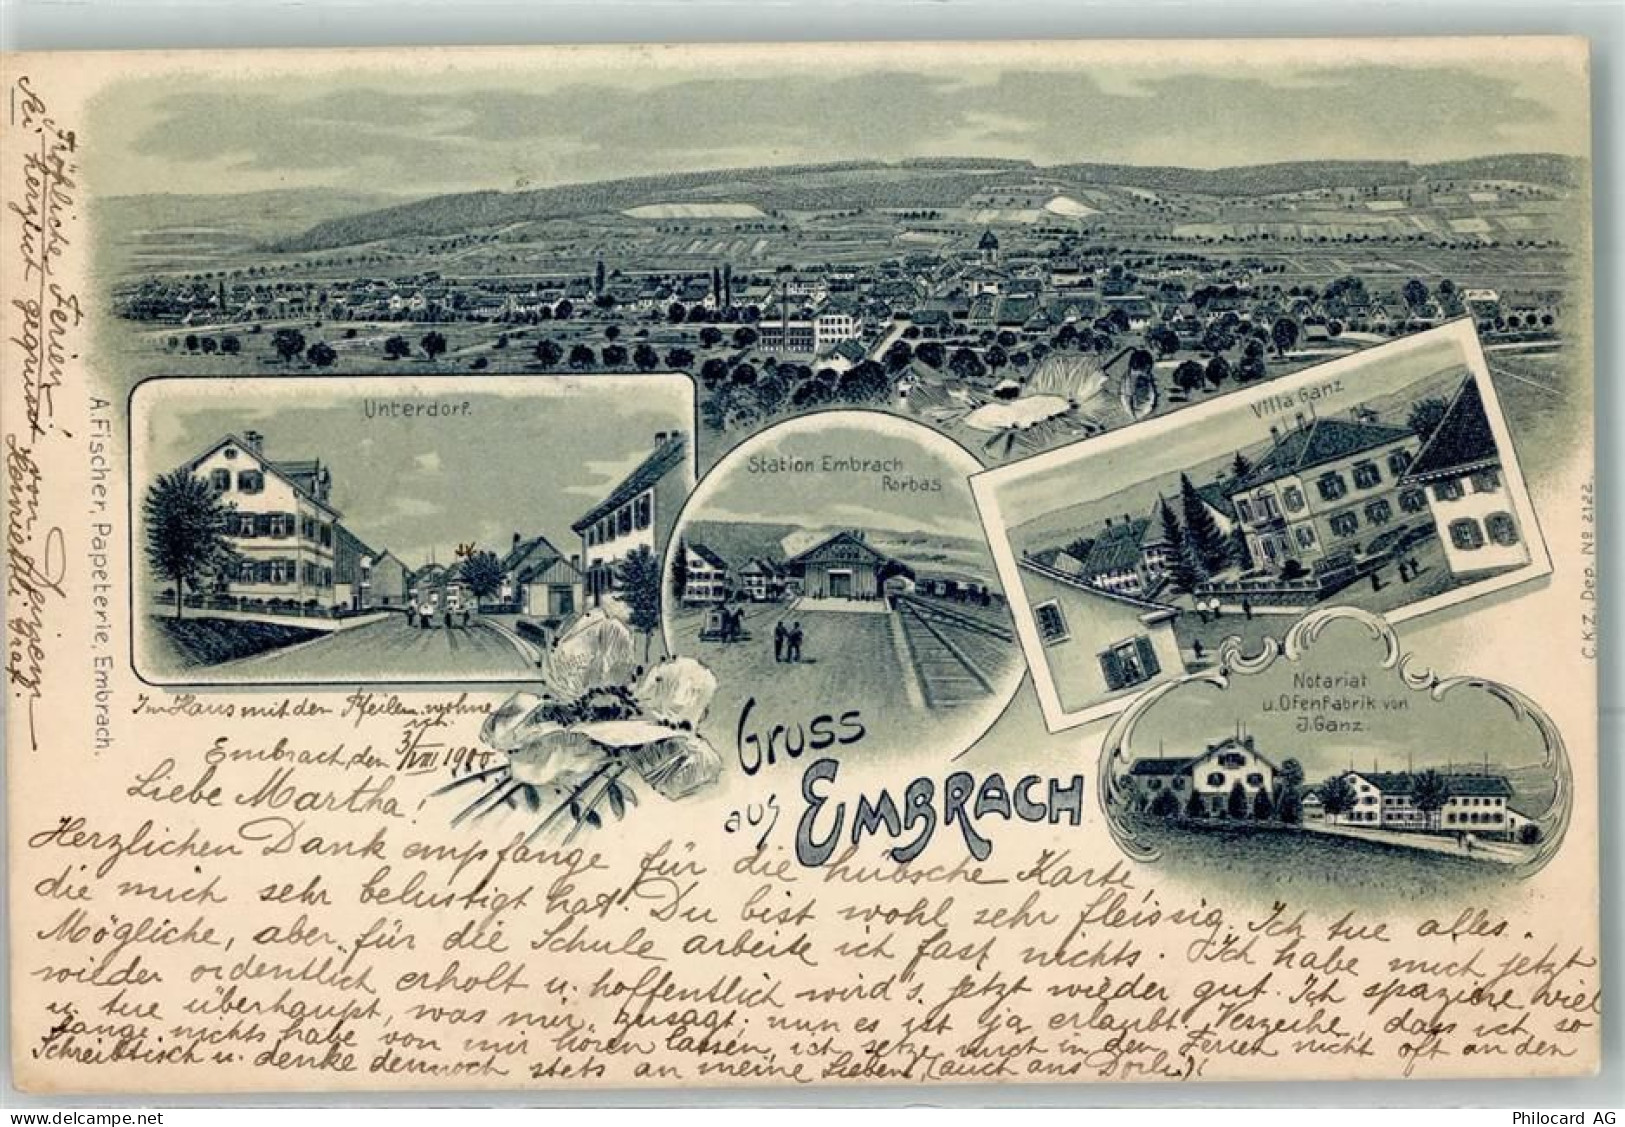 Sei herzlichst gegrüsst von Deinem
Henriette Graf.
Fröhliche Ferien!
A. Fischer, Papeterie, Embrach.
Unterdorf.
Station Embrach
Rorbas
Villa Ganz
Notariat
u. Ofenfabrik von
J. Ganz.
C.K.Z. Dep. No 2122.
Gruss
aus EMBRACH
Im Haus mit den Pfeilen wohne
ich.
Embrach, den 3/VIII 1900
Liebe Martha!
Herzlichen Dank empfange für die hübsche Karte,
die mich sehr belustigt hat. Du bist wohl sehr fleissig. Ich tue alles
Mögliche, aber für die Schule arbeite ich fast nichts. Ich habe mich jetzt
wieder ordentlich erholt u. hoffentlich wird's jetzt wieder gut. Ich spaziere viel
u. tue überhaupt, was mir zusagt; nun es ist ja erlaubt. Verzeihe, dass ich so
lange nichts habe von mir hören lassen, ich setze mich in den Ferien nicht oft an den
Schreibtisch u. denke dennoch stets an meine Lieben, (auch ans Dorli)!
Philocard AG